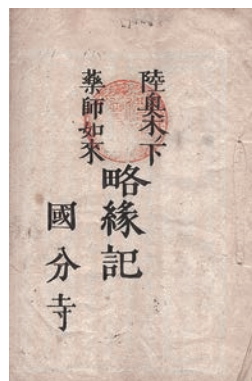 陸奥木ノ下
薬師如来
略縁記
國分寺